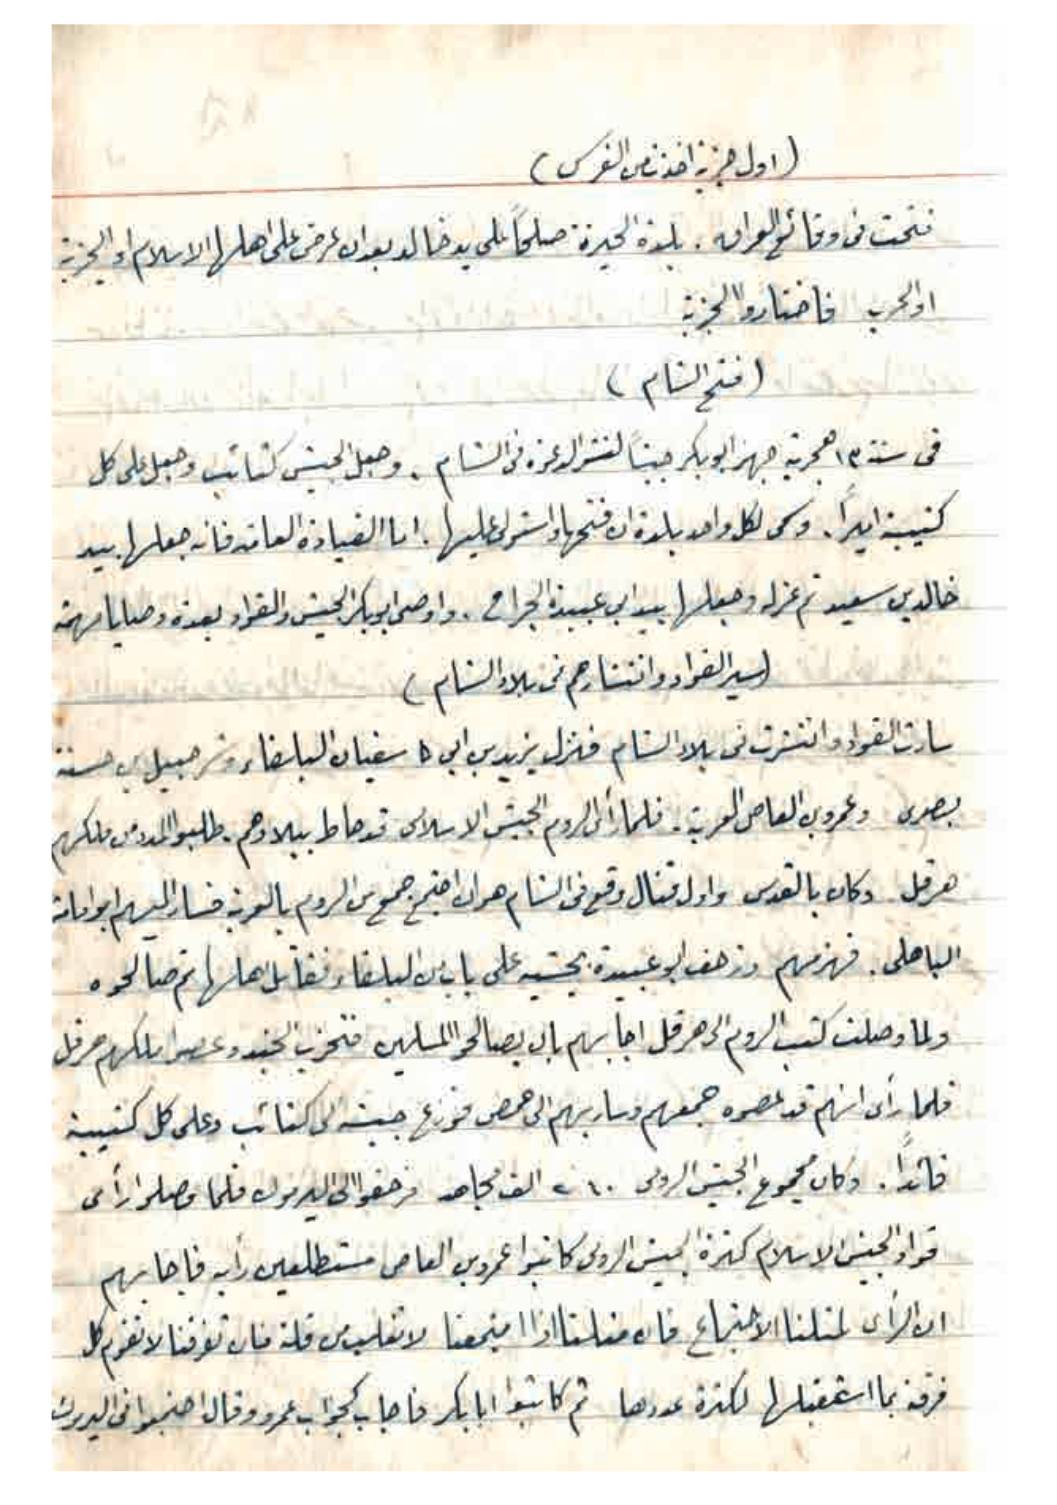 (اول جزية اخذت من الفرس)
فتحت فى وقائع العراق . بلدة الحيرة صلحاً على يد خالد بعد ان عرض على اهلها الاسلام او الجزية
او الحرب فاختاروا الجزية
(فتح الشام)
فى سنة ١٣ هجرية جهز ابو بكر جيشاً لفتح الشام . وجعل الجيش كتائب وجعل على كل
كتيبة اميراً . وسمى لكل واحد بلدة ان فتحها واستولى عليها . اما القيادة العامة فانه جعلها بيد
خالد بن سعيد ثم عزله وجعلها بيد ابى عبيدة الجراح . واوصى ابو بكر الجيش والقواد بعدة وصايا مهمة
(سير القواد وانتشارهم فى بلاد الشام)
سارت القواد وانتشرت فى بلاد الشام فنزل يزيد بن ابى سفيان البلقاء وشرحبيل بن حسنة
بصرى وعمرو بن العاص العربة . فلما رأى الروم الجيش الاسلامى قد حاط ببلادهم . طلبوا المدد من ملكهم
هرقل . وكان بالقدس واول قتال وقع فى الشام هو ان اجتمع جموع من الروم بالعربة فسار اليهم ابو امامة
الباهلى . فهزمهم وزحف ابو عبيدة بجيشه على باب من البلقاء فقاتل اهلها ثم صالحوه
ولما وصلت كتب الروم الى هرقل اجابهم بان يصالحوا المسلمين فتحزب الجند وعصوا ملكهم هرقل
فلما رأى انهم قد عصوه جمعهم وسار بهم الى حمص فوزع جيشه الى كتائب وعلى كل كتيبة
قائداً . وكان مجموع الجيش الرومى ٢٤٠ الف مجاهد فزحفوا الى اليرموك فلما وصلوا رأى
قواد الجيش الاسلام كثرة الجيش الرومى كاتبوا عمرو بن العاص مستطلعين رأيه فاجابهم
ان الرأى لمثلنا الاجتماع فان مثلنا اذا اجتمعنا لا نغلب من قلة فان تفرقنا لا تقوم كل
فرقة بما استقبلها لكثرة عددها ثم كاتبوا ابا بكر فاجاب كجواب عمرو وقال اجتمعوا فى اليرموك